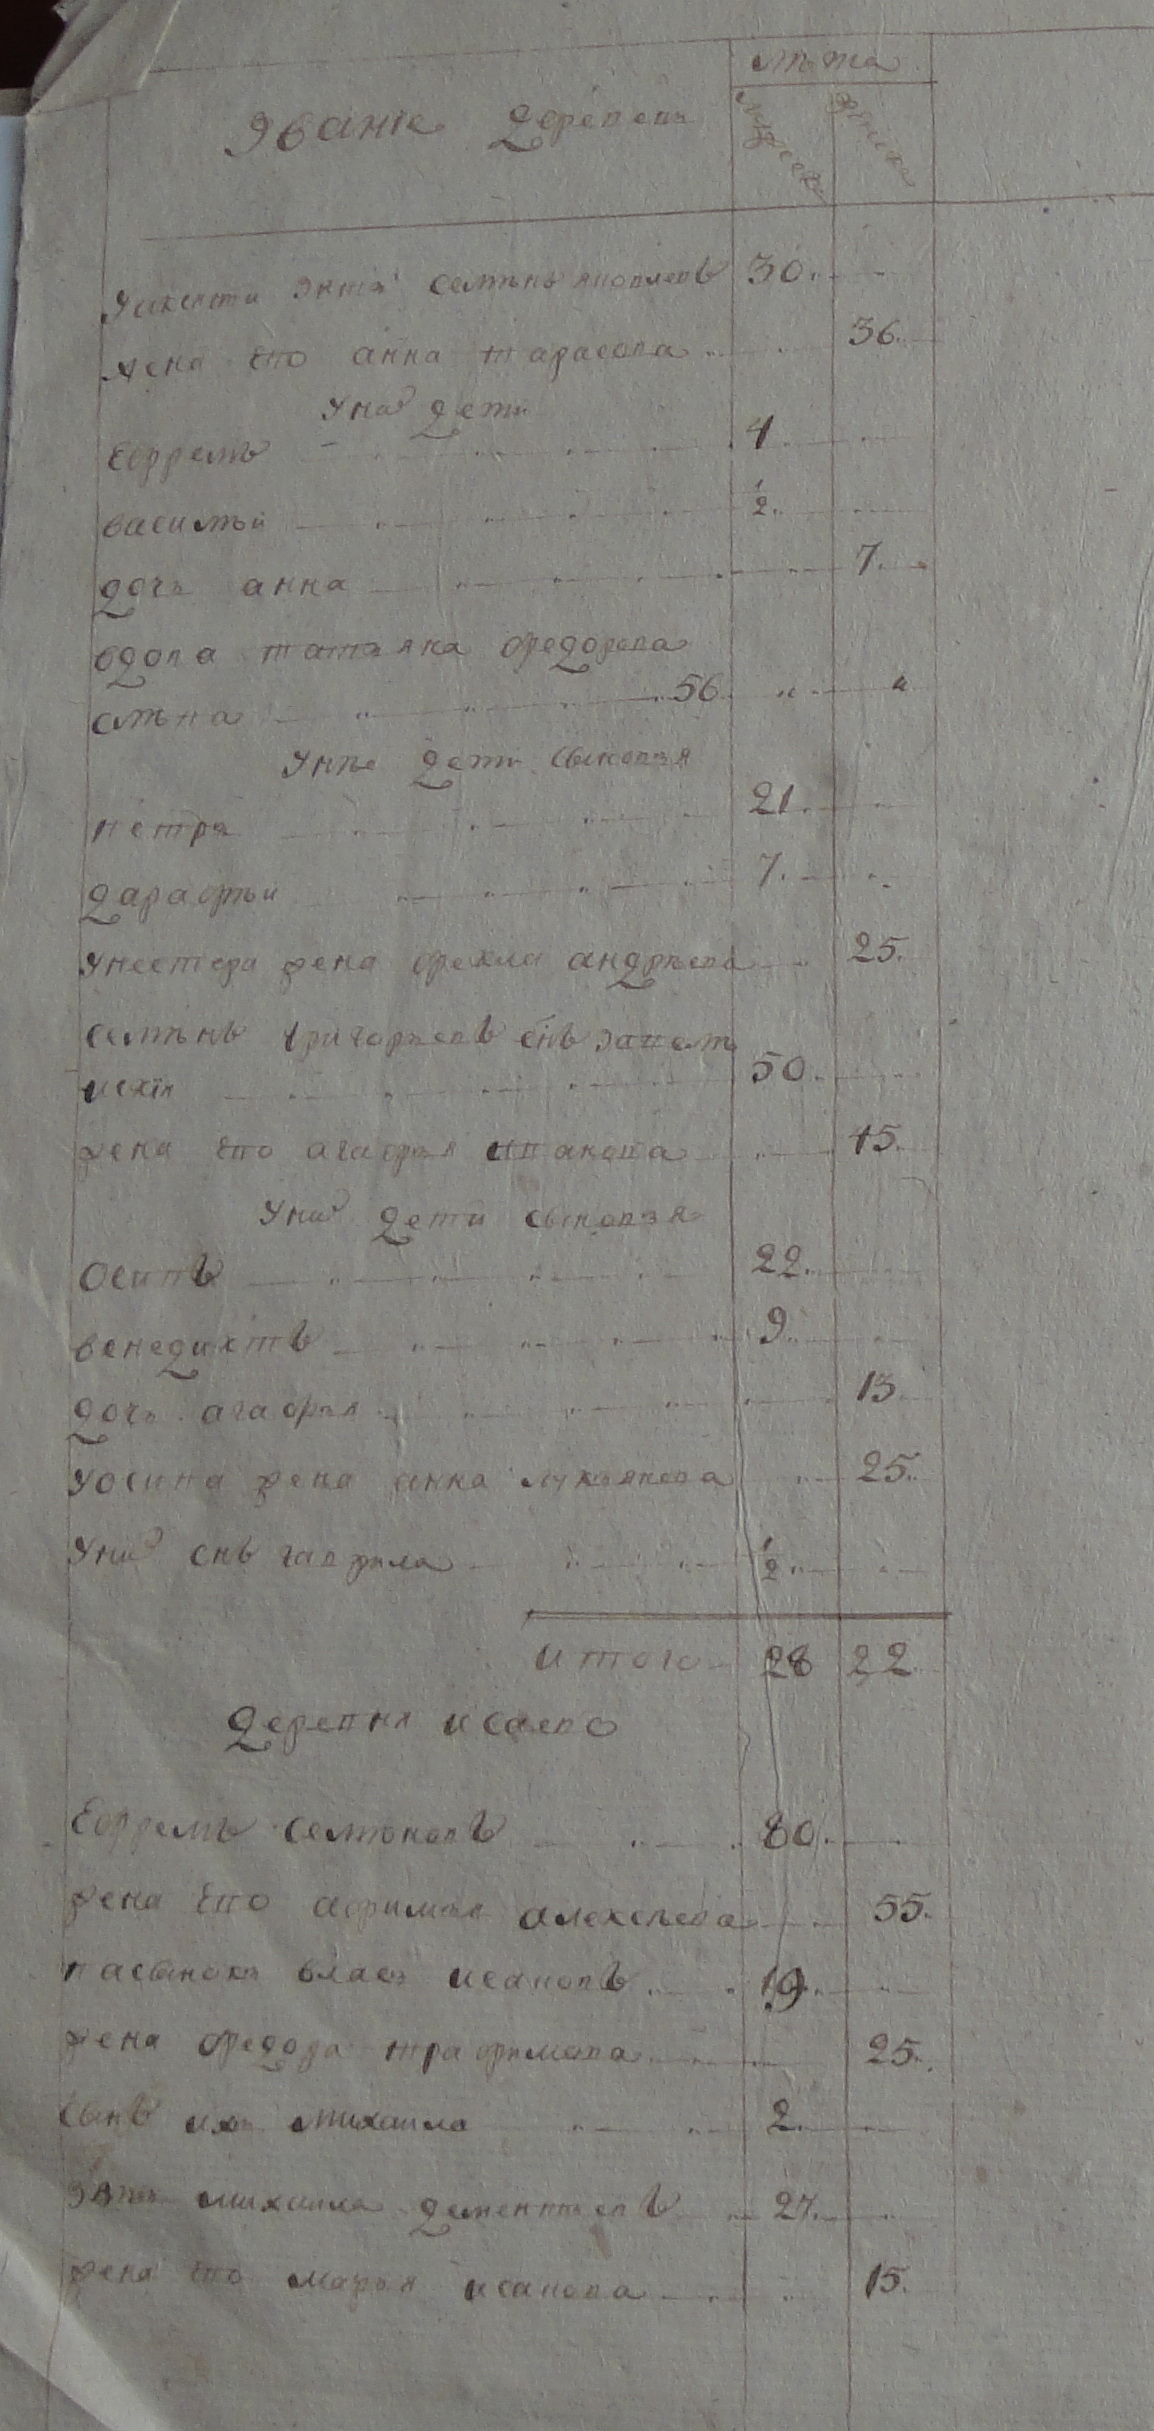 Званіе деревень
лѣта
мужеска
женска
Уаксенти зять семѣнъ яковлевъ 30
жена его анна тарасова 36
Униꙋ дети
Ефремъ 4
василѣй ½
дочь анна 7
вдова татьяна федорова
смѣна 56
Унѣе дети сыновья
петръ 21
дарафѣй 7
Унестера жена фекла андрѣева 25
семѣнъ григорьевъ снъ запол
искія 50
жена его агафья иванова 45
Униꙋ дети сыновья
Осипъ 22
венедихтъ 9
дочь агафья 13
Уосипа жена анна лукьянова 25
Униꙋ снъ гаврила ½
итого 28 22
Деревня исаево
Ефремъ семѣновъ 80
жена его афимья алексѣева 55
пасынокъ власъ исаковъ 19
жена федора трафимова 25
сынъ ихъ михаила 2
зять михаила дементьевъ 27
жена его марья исакова 15